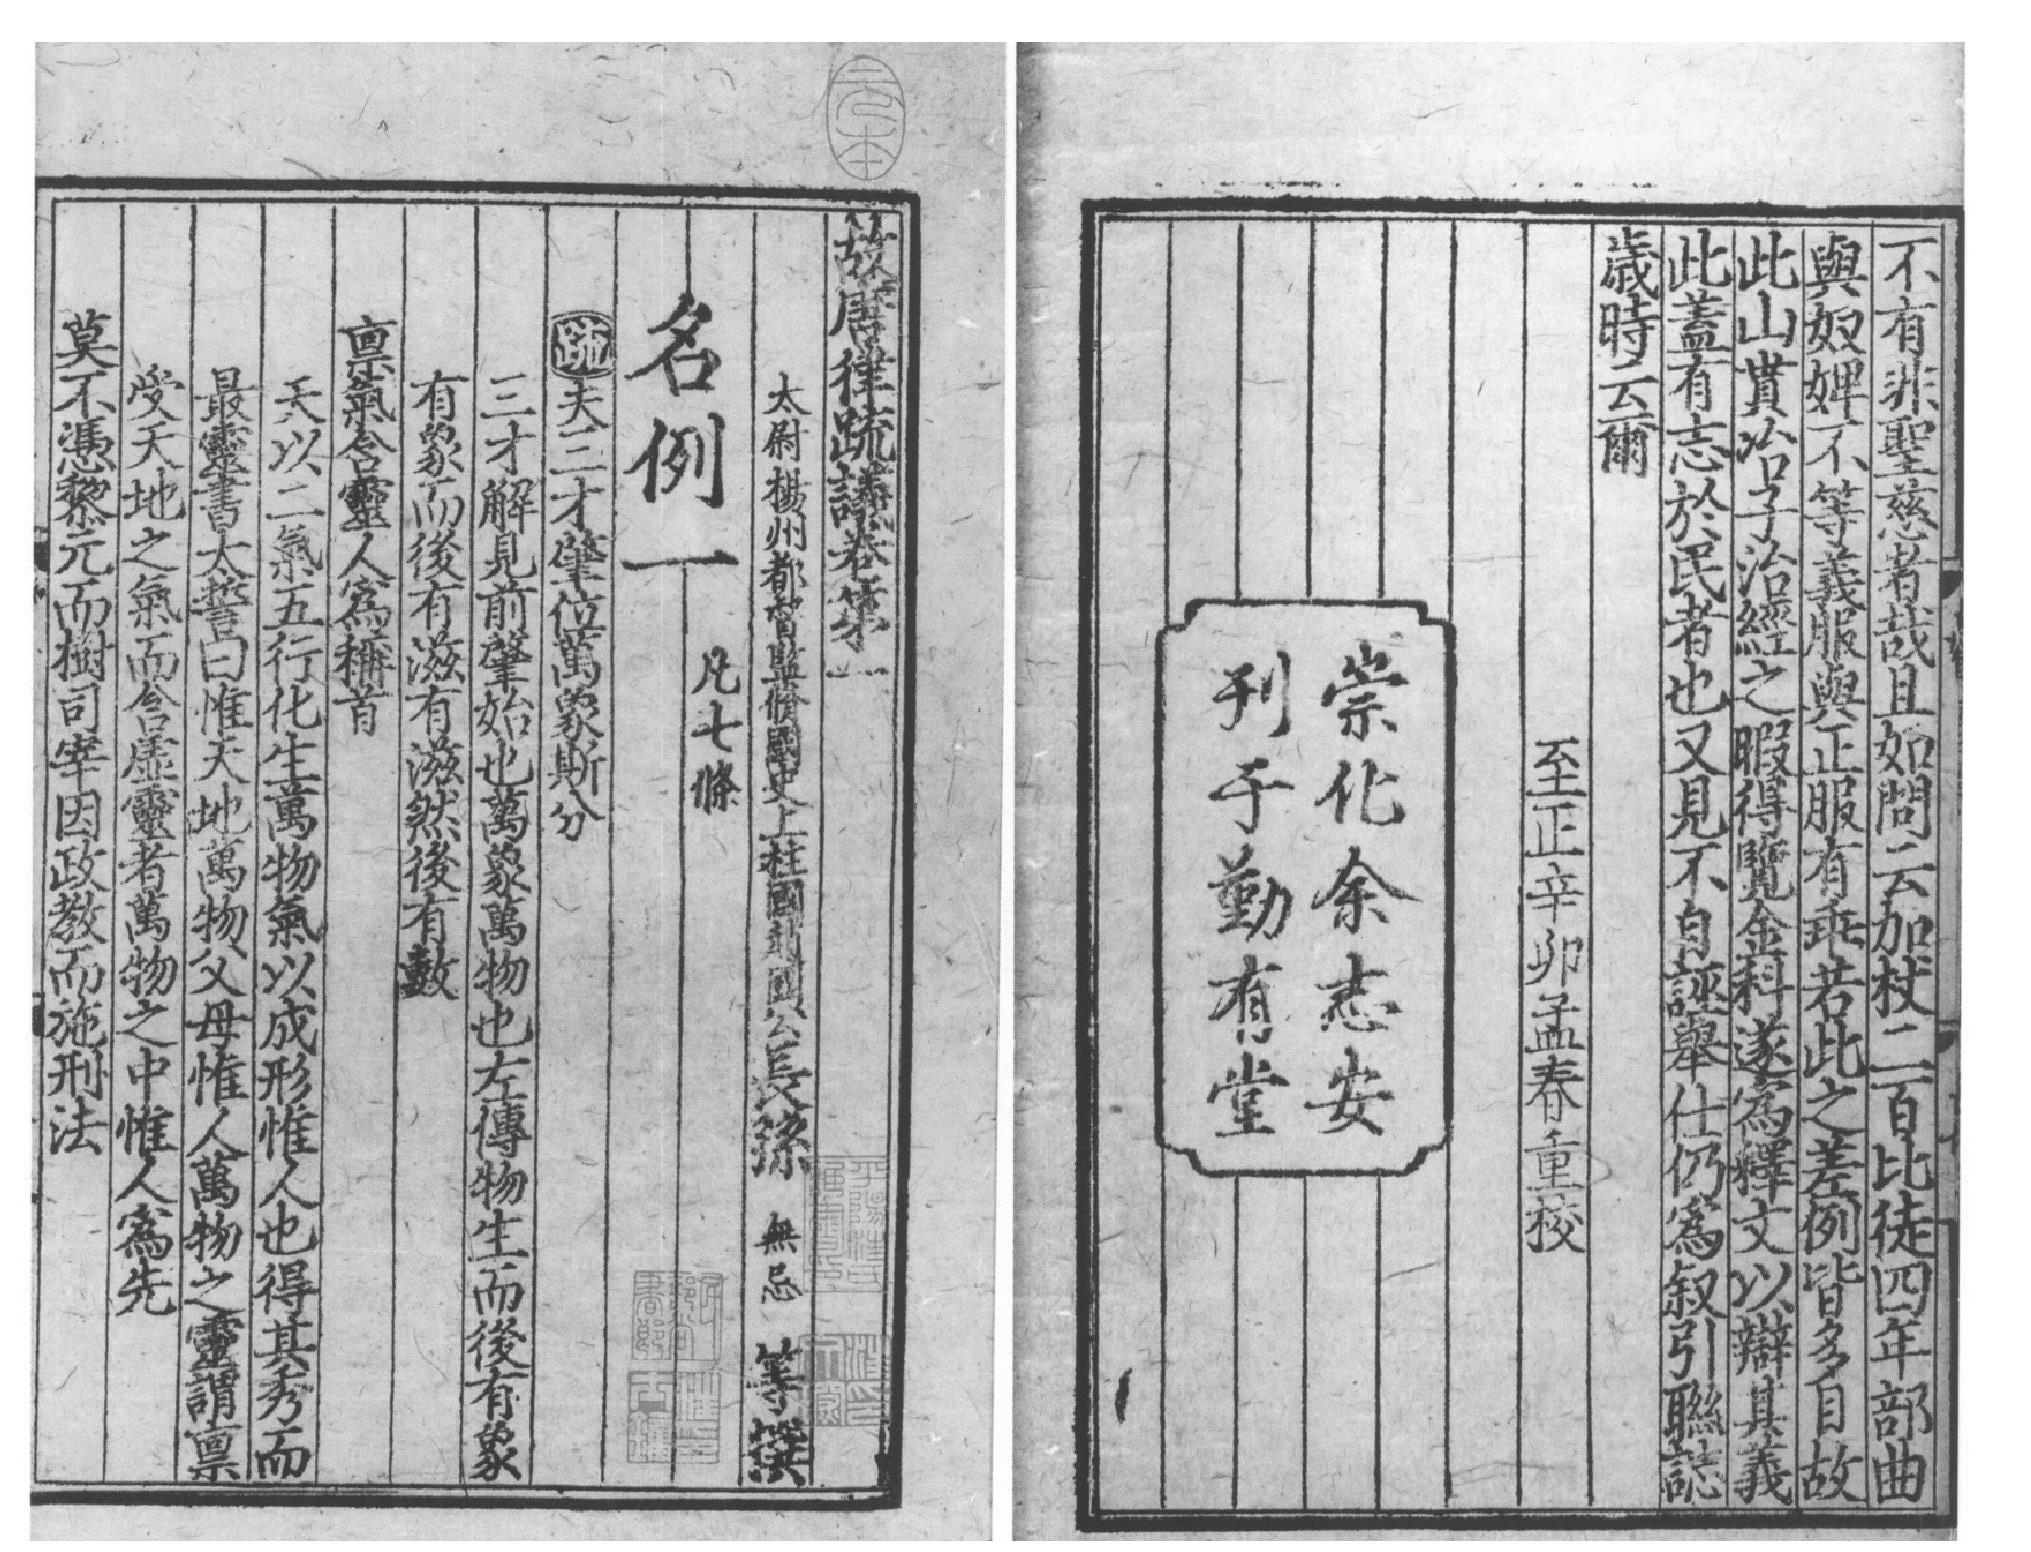 不有非聖慈者哉且如問云加杖二百比徒四年部曲
與奴婢不等義服與正服有乖若此之差例皆多目故
此山貰冶子治經之暇得覽金科遂為釋文以辯其義
此蓋有志於民者也又見不自誣舉仕仍為叙引聯誌
歲時云爾
至正辛卯孟春重校
崇化余志安
刊于勤有堂
元本
故唐律疏議卷第一
太尉楊州都督監脩國史上柱國趙國公長孫無忌等撰
名例一 凡七條
疏夫三才肇位萬象斯分
三才解見前肇始也萬象萬物也左傳物生而後有象
有象而後有滋有滋然後有數
禀氣含靈人為稱首
天以二氣五行化生萬物氣以成形惟人也得其秀而
最靈書太誓曰惟天地萬物父母惟人萬物之靈謂禀
受天地之氣而含虛靈者萬物之中惟人為先
莫不憑黎元而樹司宰因政教而施刑法